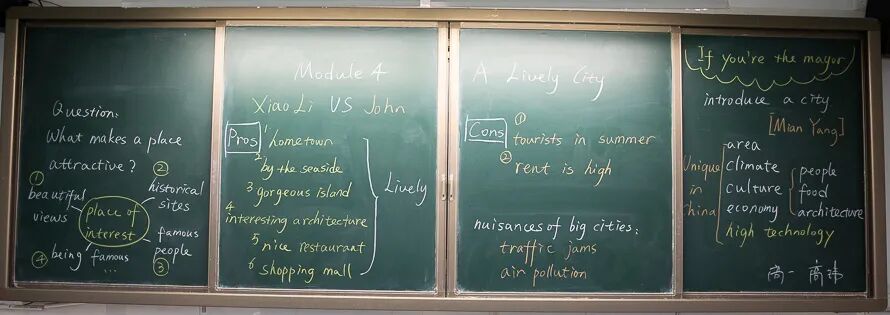 Question:
What makes a place
attractive?
① beautiful
views
② historical
sites
place of
interest
famous
people
③
④ being famous
...
Module 4
Xiao Li VS John
Pros
1 hometown
2 by the seaside
3 gorgeous island
4 interesting architecture
5 nice restaurant
6 shopping mall
Lively
A Lively City
Cons
① tourists in summer
② rent is high
nuisances of big cities:
traffic jams
air pollution
If you're the mayor
introduce a city
[Mian Yang]
Unique
in
China
area
climate
culture
economy
high technology
people
food
architecture
高一